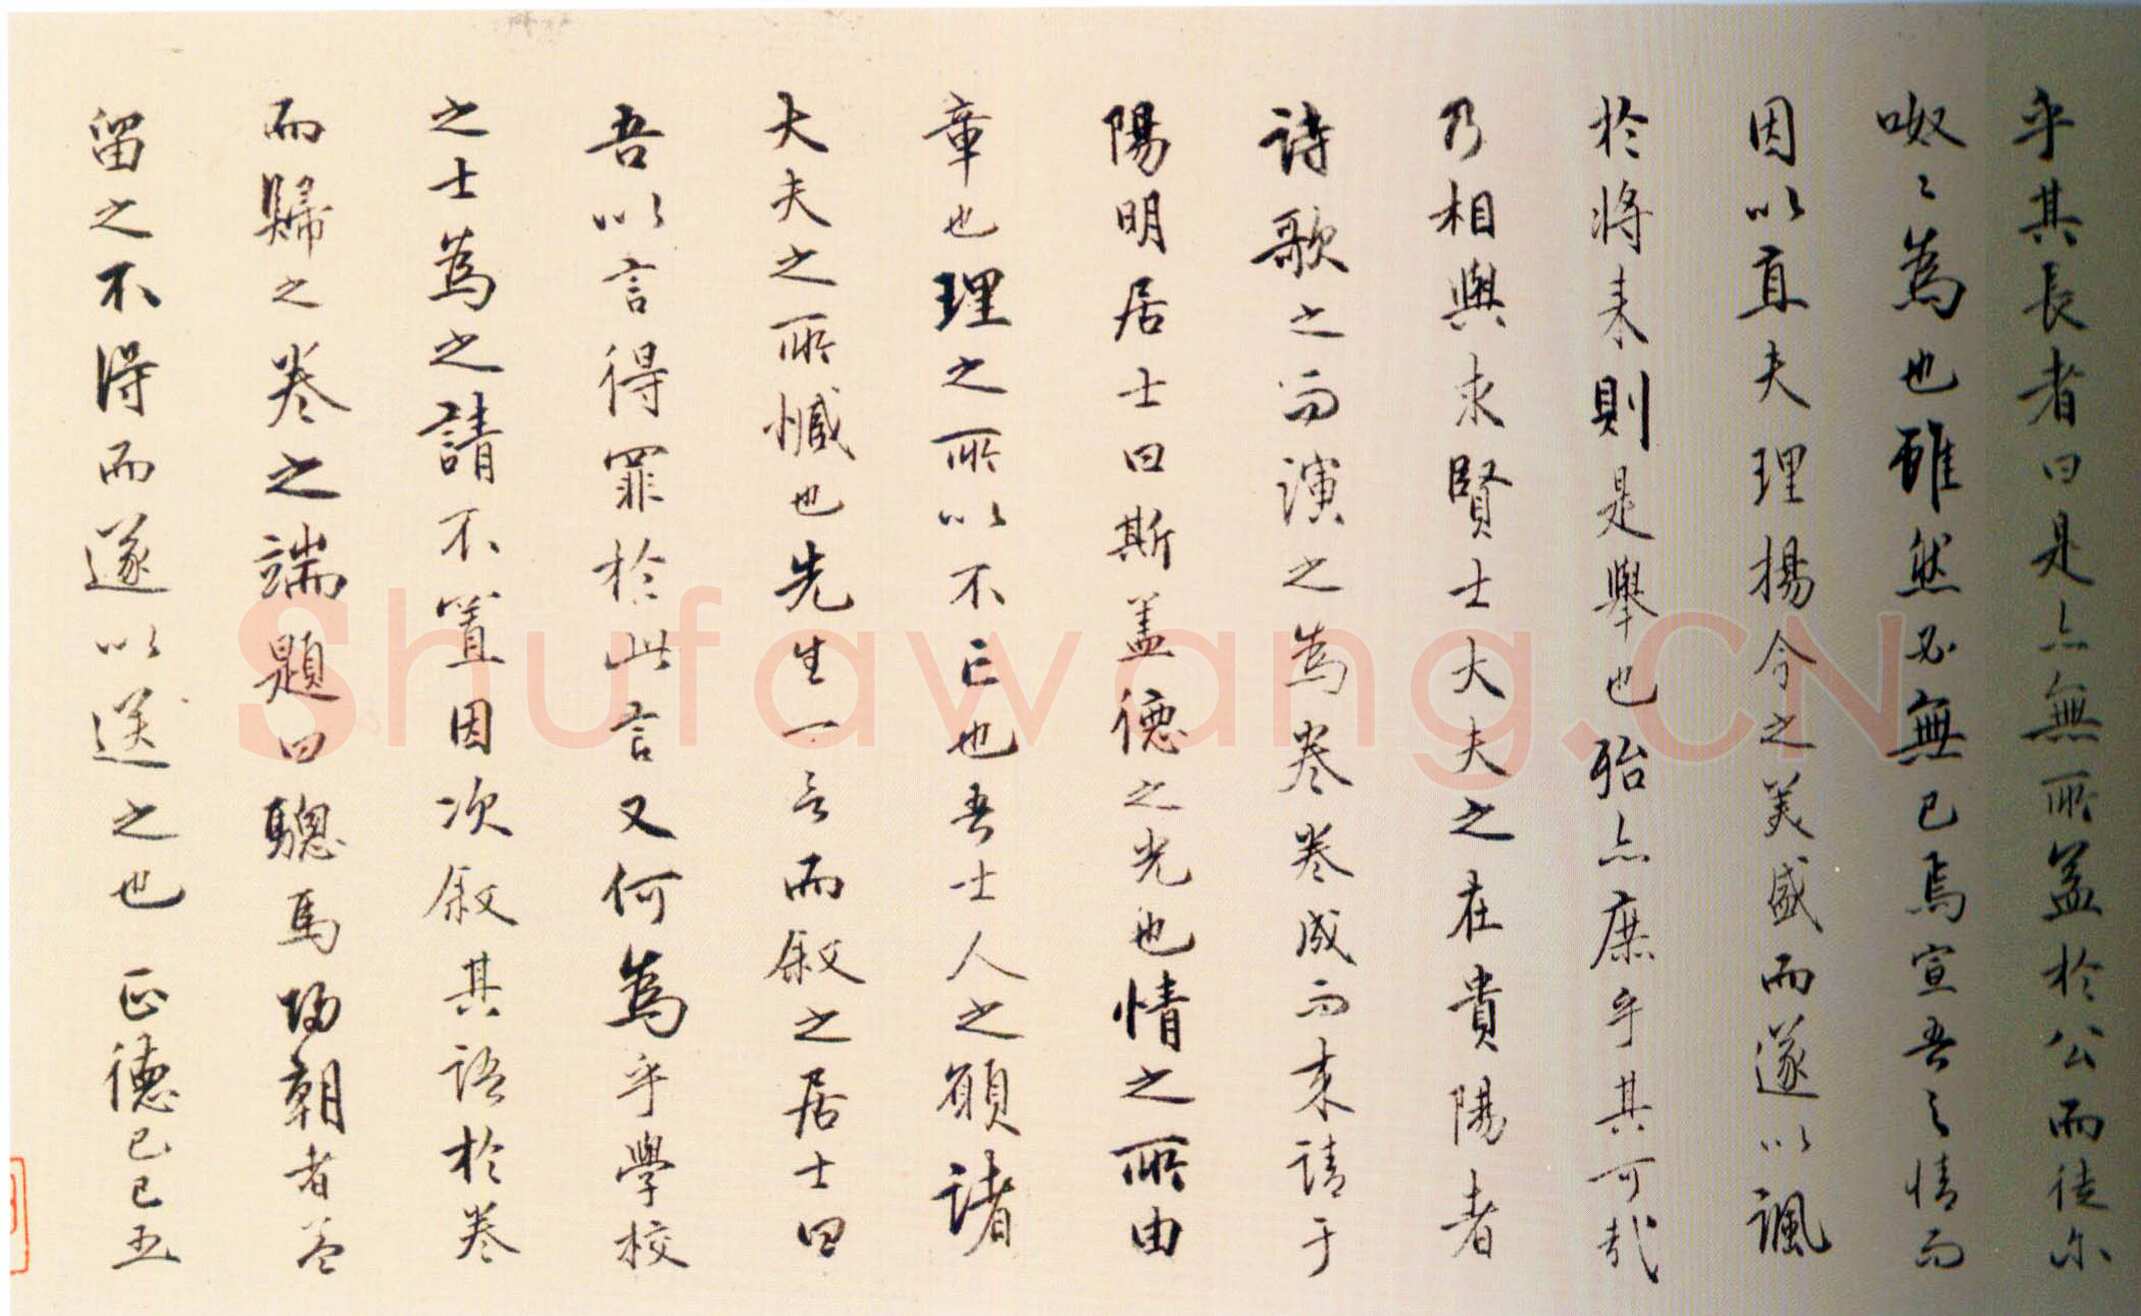 乎其長者曰是亦無所益於公而徒尔
呶〻為也雖然必無已焉宣吾之情而
因以直夫理揚今之美盛而遂以諷
於將来則是舉也殆亦庶乎其可哉
乃相與求賢士大夫之在貴陽者
詩歌之而演之為卷卷成而来請于
陽明居士曰斯盖德之光也情之所由
章也理之所以不亡也吾士人之願諸
大夫之所憾也先生一言而叙之居士曰
吾以言得罪於此言又何為乎學校
之士為之請不置因次叙其語於卷
而歸之卷之端題曰驄馬歸朝者盖
留之不得而遂以送之也 正德己巳五
Shufawang.CN